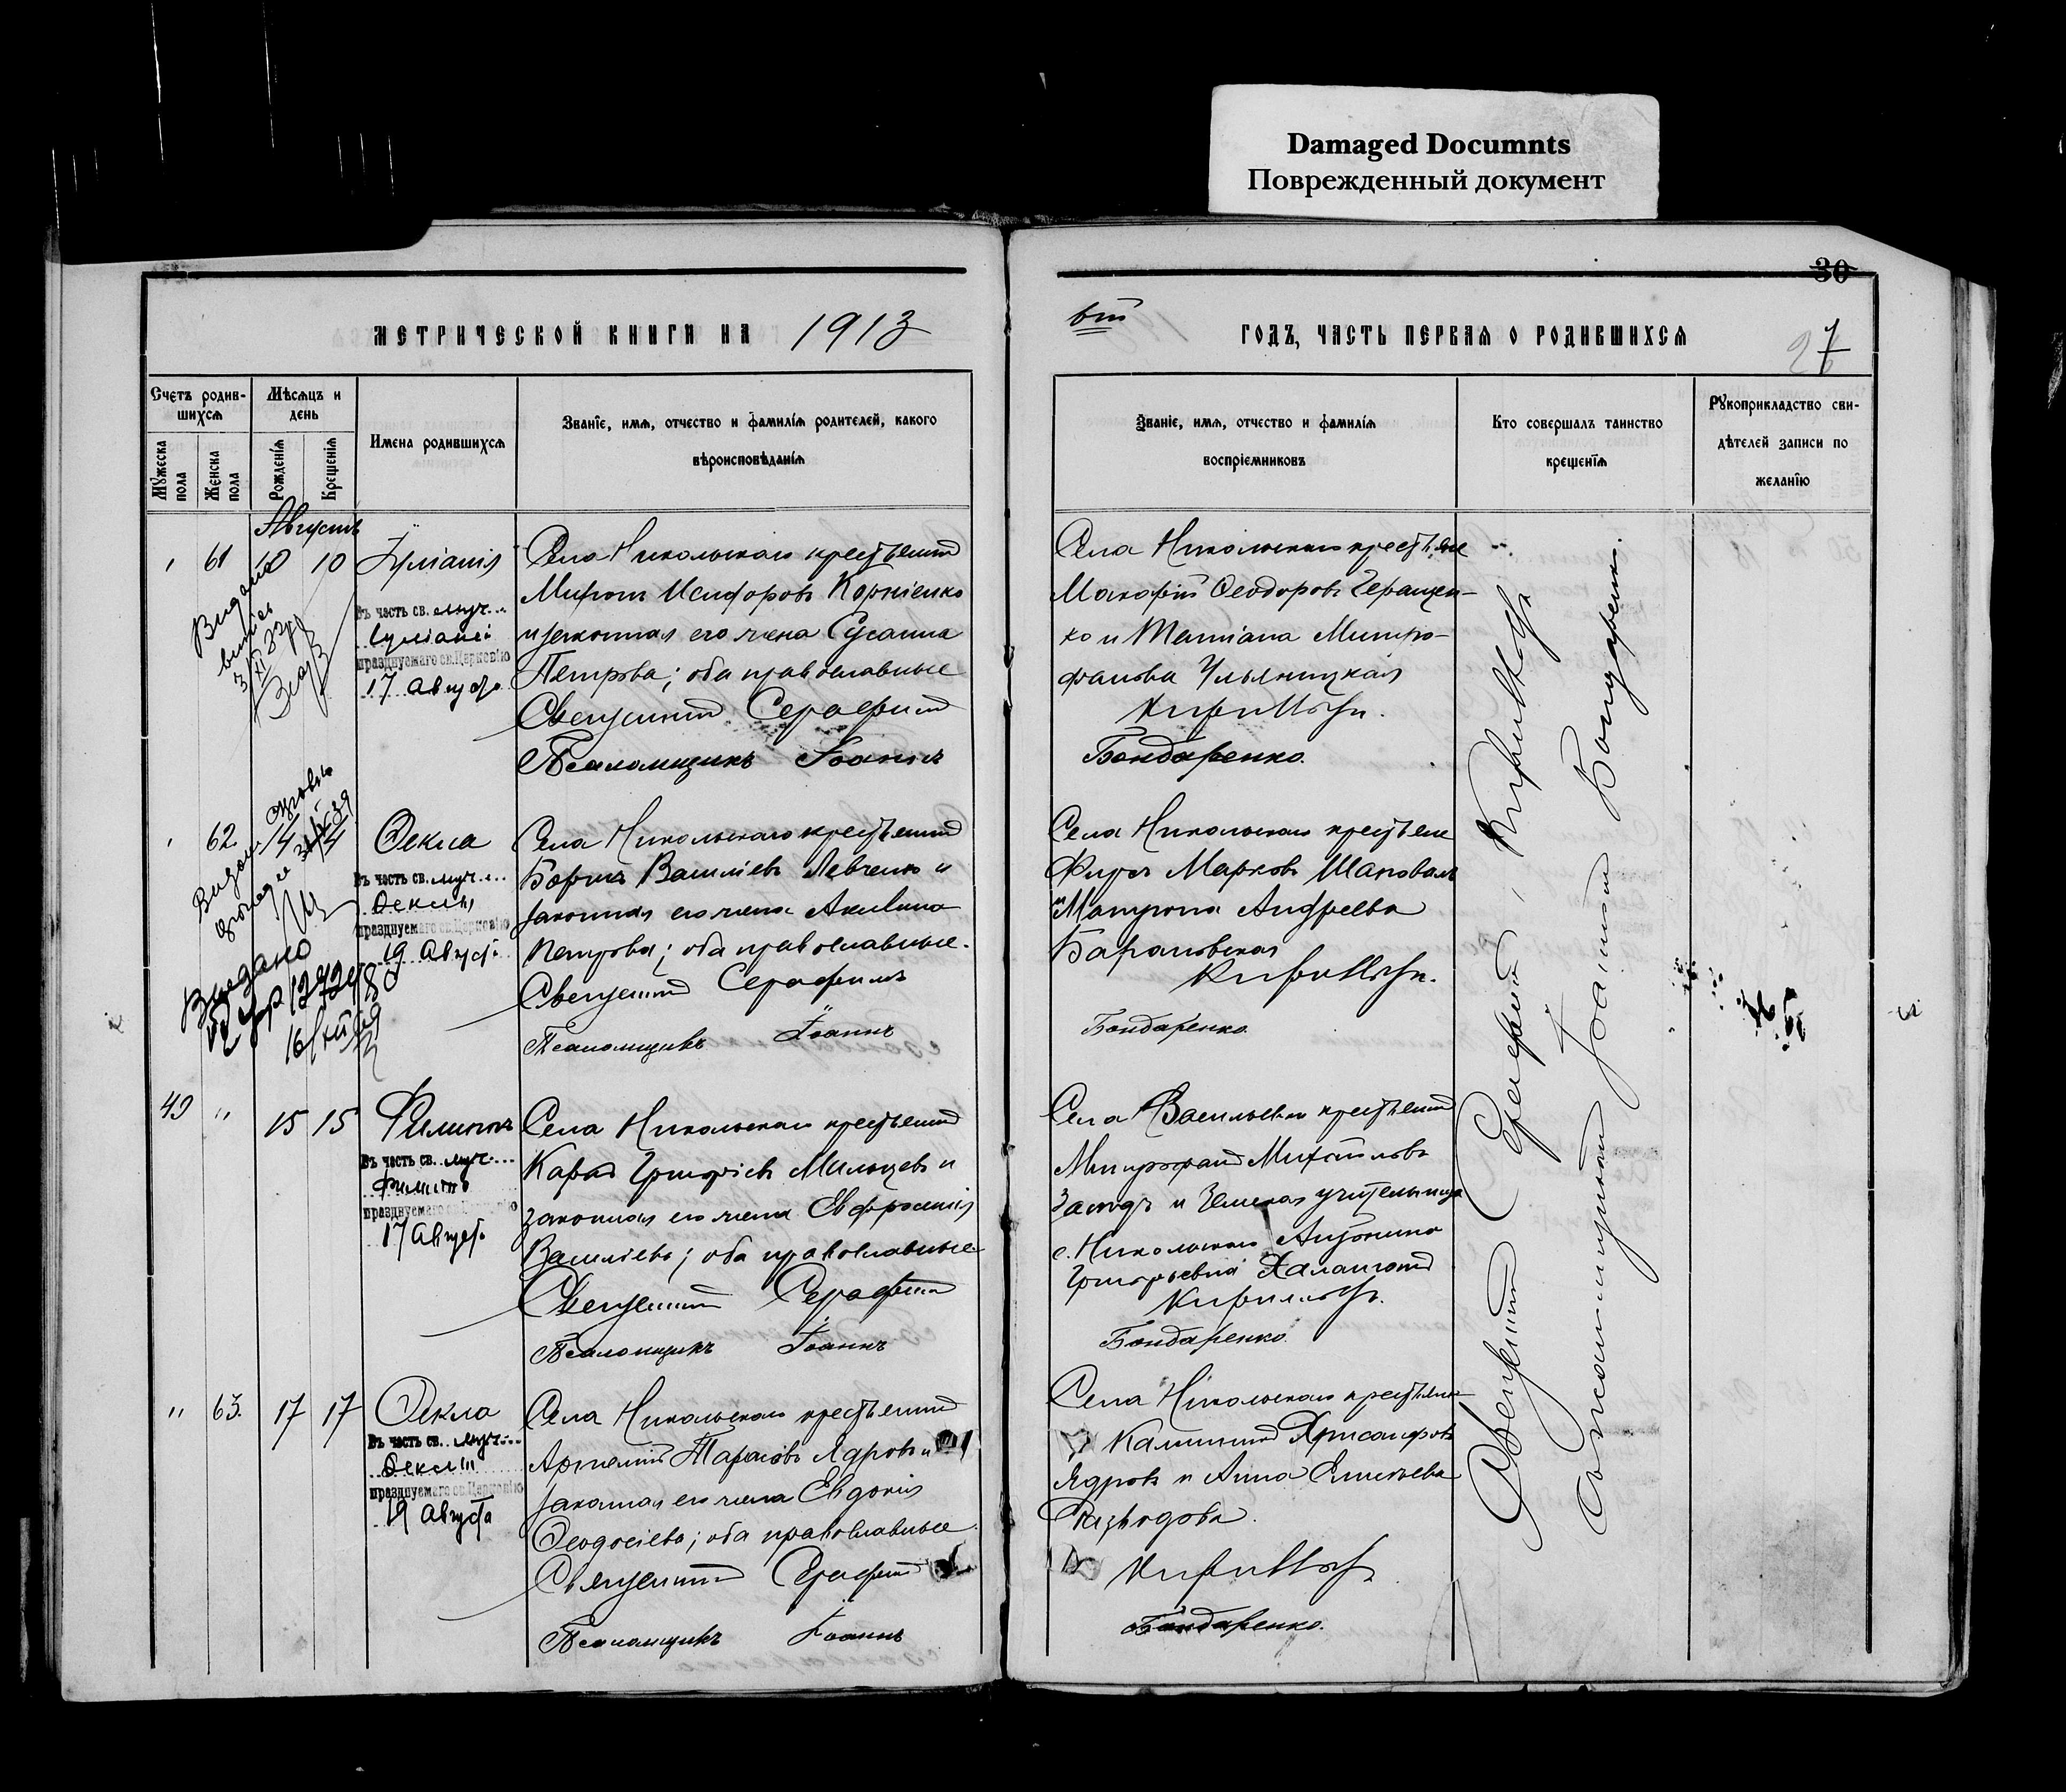 Damaged Documnts
Поврежденный документ
30
МЕТРИЧЕСКОЙ КНИГИ НА 1913
ГОДЪ, ЧАСТЬ ПЕРВАЯ О РОДИВШИХСЯ
Счетъ родив-
шихся
Мѣсяцъ и
день
Мужеска
пола
Женска
пола
Рожденія
Крещенія
Имена родившихся
Званіе, имя, отчество и фамилія родителей, какого
вѣроисповѣданія
Званіе, имя, отчество и фамилія
воспріемниковъ
Кто совершалъ таинство
крещенія
Рукоприкладство сви-
дѣтелей записи по
желанію
Августъ
61 10 10 Іуліанія
Въ честь св. муч.
Іуліаніи
празднуемаго св. Церковію
17 Августа
Села Никольскаго крестьянинъ
Миронъ Исидоровъ Корніенко
и законная его жена Сусанна
Петрова; оба православные
Священникъ Серафимъ
Псаломщикъ Іоаннъ
Села Никольскаго крестьяне
Макарій Ѳеодоровъ Геращен-
ко и Татіана Митро-
фанова Ульяницкая
Бондаренко.
62. 14 14 Ѳекла
Въ честь св. муч.
Ѳеклы
празднуемаго св. Церковію
19 Август.
Села Никольскаго крестьянинъ
Борисъ Василіевъ Левченко и
законная его жена Акилина
Петрова; оба православные.
Священникъ Серафимъ
Псаломщикъ Іоаннъ
Села Никольскаго крестьяне
Фирсъ Марковъ Шаповалъ
и Матрона Андреева
Барановская
Бондаренко.
Видано
49 " 15 15 Филиппъ
Въ честь св. муч.
Филиппа
празднуемаго св. Церковію
17 Август.
Села Никольскаго крестьянинъ
Карпъ Григоріевъ Мильцевъ и
законная его жена Евфросинія
Василіева; оба православные
Священникъ Серафимъ
Псаломщикъ Іоаннъ
Села Васильевки крестьянинъ
Митрофанъ Михайловъ
и Земская учительница
с. Никольскаго Антонина
Григорьевна
Бондаренко.
" 63. 17 17 Ѳекла
Въ честь св. муч.
Ѳеклы
празднуемаго св. Церковію
19 Августа
Села Никольскаго крестьянинъ
Артемій Тарасовъ Ядровъ и
законная его жена Евдокія
Ѳеодосіева; оба православные.
Священникъ Серафимъ
Псаломщикъ Іоаннъ
Села Никольскаго крестьяне
Хрисанфовъ
Ядровъ и Анна
Бондаренко.
Священникъ Серафимъ
Псаломщикъ Іоаннъ Бондаренко.